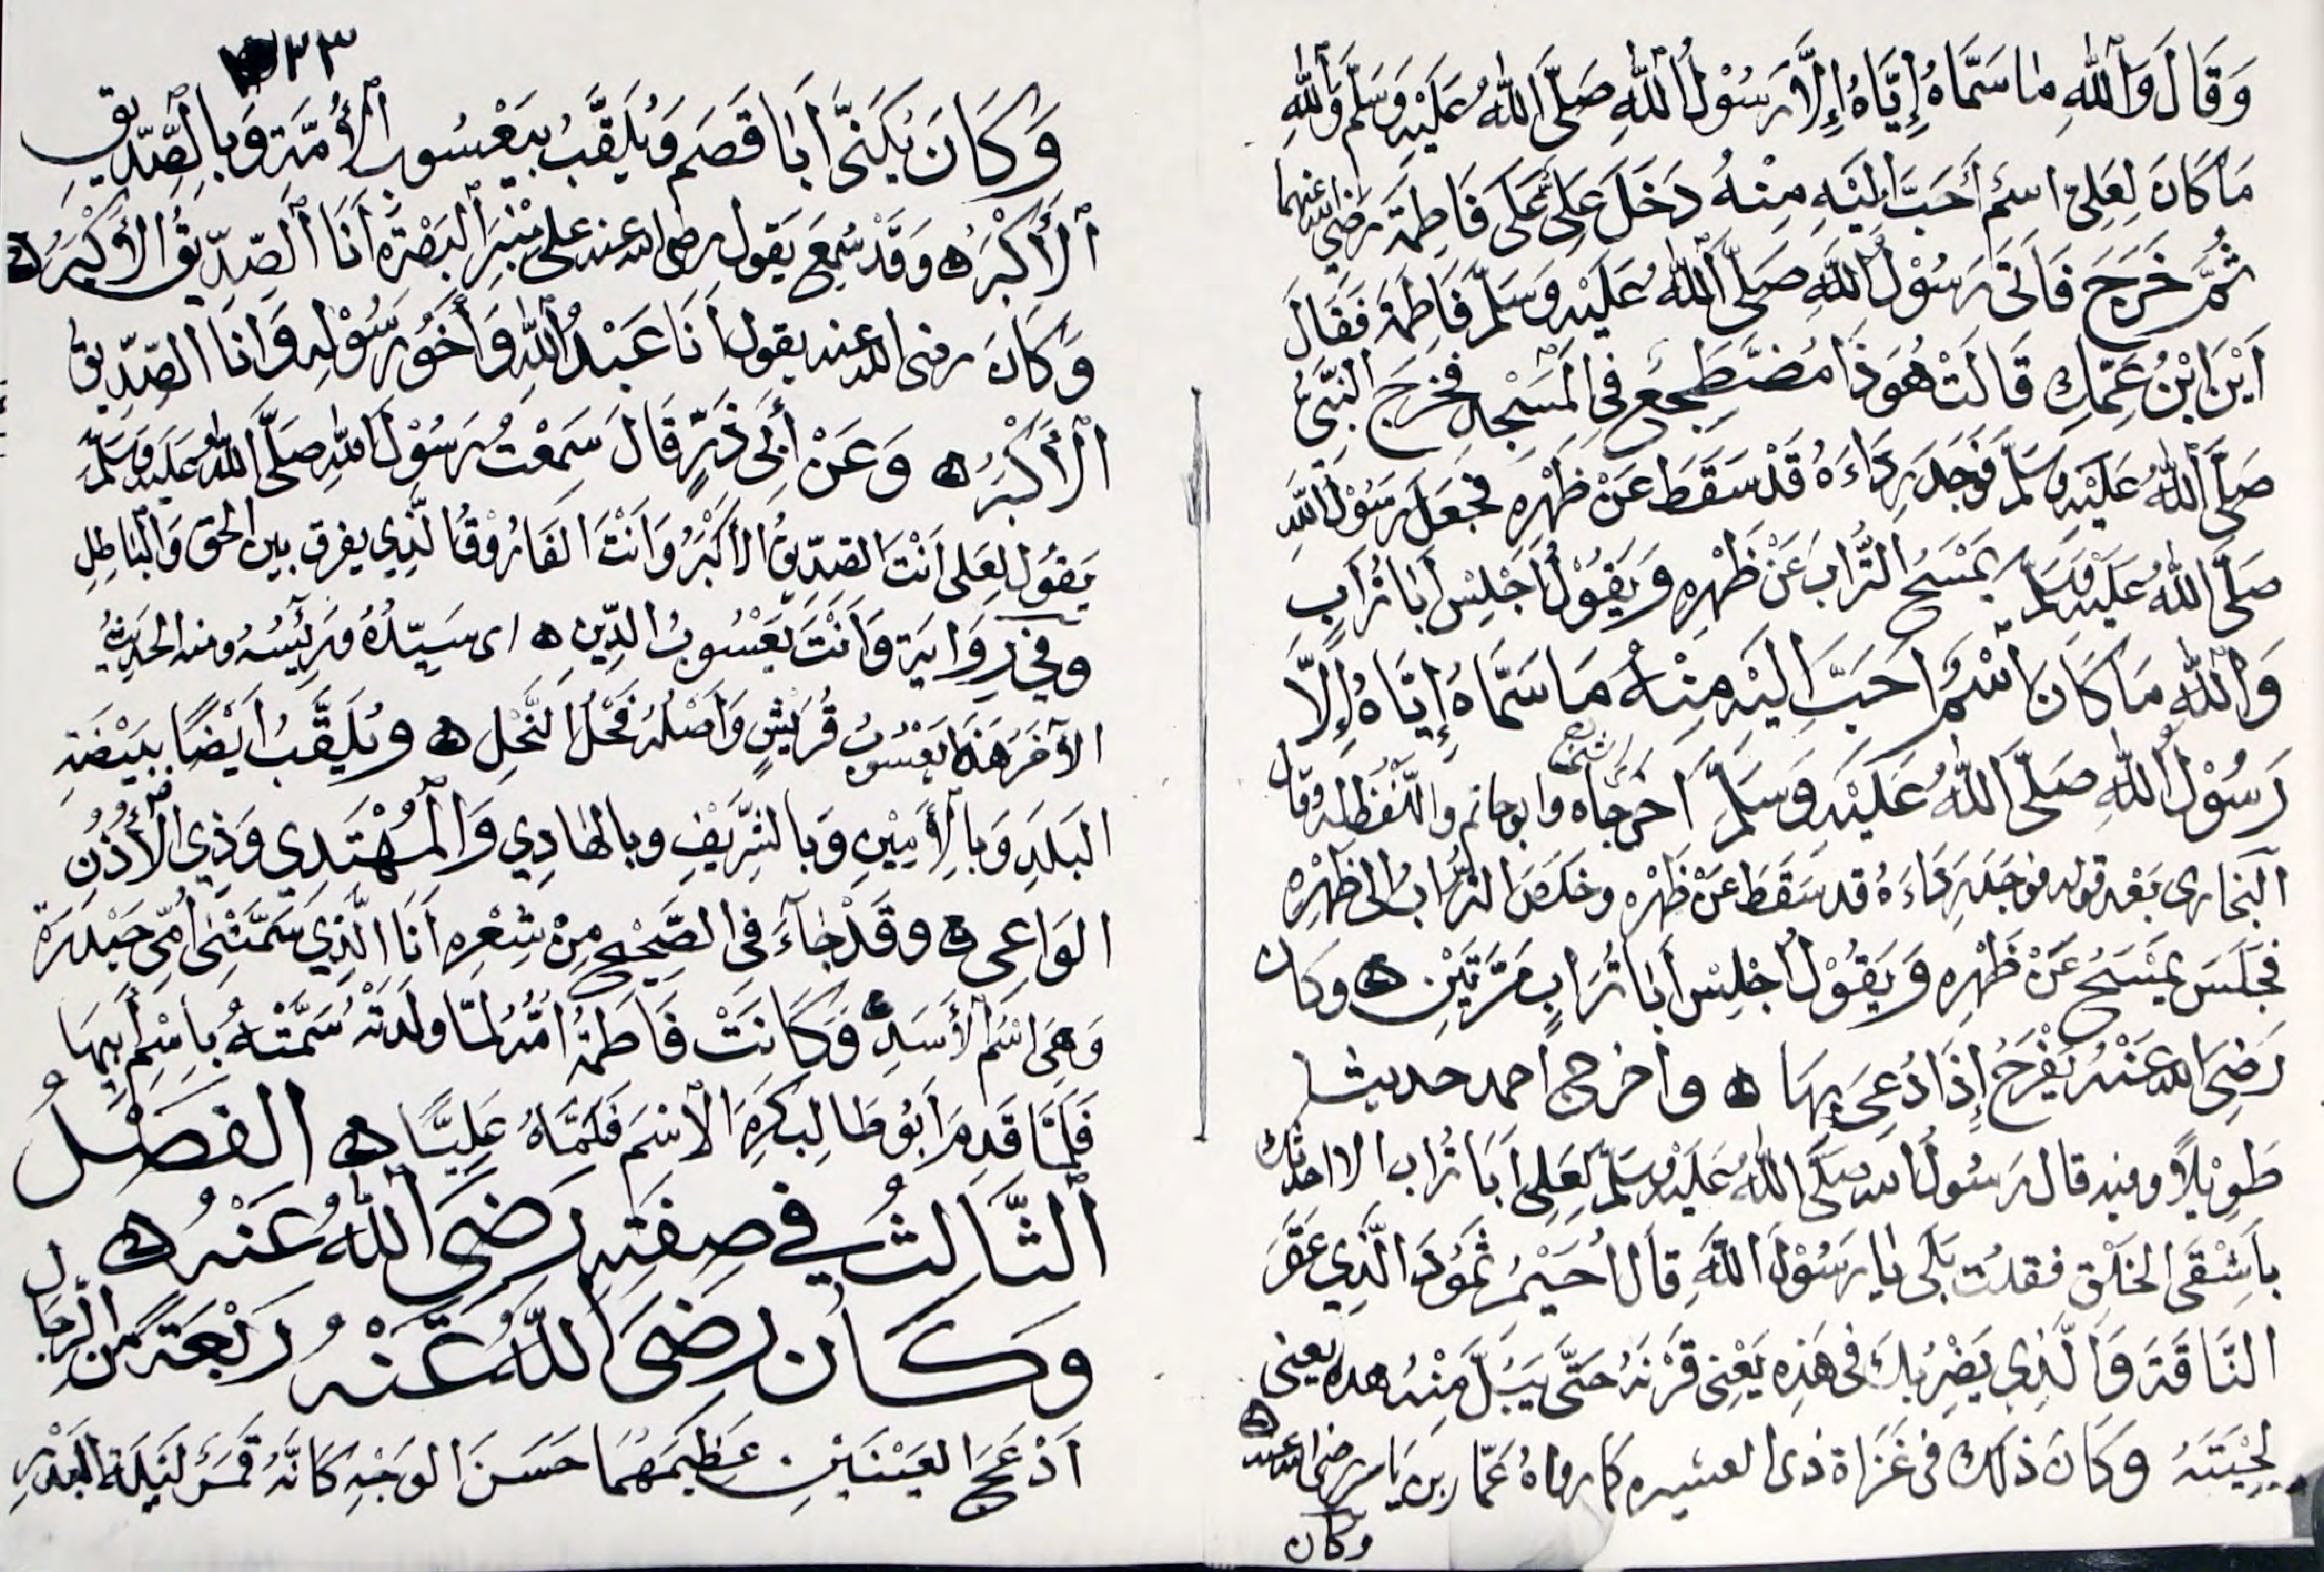 وَقَالَ وَاللهِ مَا سَمَّاهُ إِيَّاهُ إِلَّا رَسُوْلُ اللهِ صَلَّى اللهُ عَلَيْهِ وَسَلَّمَ وَاللهِ
مَا كَانَ لِعَلِيٍّ اسْمٌ أَحَبَّ إِلَيْهِ مِنْهُ دَخَلَ عَلِيٌّ عَلَى فَاطِمَةَ رضي الله عنهما
ثُمَّ خَرَجَ فَأَتَى رَسُوْلُ اللهِ صَلَّى اللهُ عَلَيْهِ وَسَلَّمَ فَاطِمَةَ فَقَالَ
أَيْنَ ابْنُ عَمِّكِ قَالَتْ هُوَ ذَا مُضْطَجِعٌ فِي الْمَسْجِدِ فَخَرَجَ النَّبِيُّ
صَلَّى اللهُ عَلَيْهِ وَسَلَّمَ فَوَجَدَ رِدَاءَهُ قَدْ سَقَطَ عَنْ ظَهْرِهِ فَجَعَلَ رَسُوْلُ اللهِ
صَلَّى اللهُ عَلَيْهِ وَسَلَّمَ يَمْسَحُ التُّرَابَ عَنْ ظَهْرِهِ وَيَقُوْلُ اجْلِسْ أَبَا تُرَابٍ
وَاللهِ مَا كَانَ اسْمٌ أَحَبَّ إِلَيْهِ مِنْهُ مَا سَمَّاهُ إِيَّاهُ إِلَّا
رَسُوْلُ اللهِ صَلَّى اللهُ عَلَيْهِ وَسَلَّمَ أخرجاه وابوحاتم واللَّفْظُ لَهُ وقال
البخارى بَعْدَ قوله فوَجَدَ رِدَاءَهُ قد سَقَطَ عَنْ ظَهْرِهِ وخَلَصَ التُّرَابُ إلى ظَهْرِهِ
فَجَلَسَ يَمْسَحُ عَنْ ظَهْرِهِ وَيَقُوْلُ اجْلِسْ أَبَا تُرَابٍ مَرَّتَيْنِ ۵ وكان
رَضِيَ اللهُ عَنْهُ يَفْرَحُ إِذَا دُعِيَ بِهَا ۵ وأخرج احمد حديثا
طَوِيْلًا وفيه قال رَسُولُ الله صَلَّى اللهُ عَلَيْهِ وَسَلَّمَ لِعَلِيٍّ أَبَا تُرَاب الا احدثك
بِأَشْقَى الخَلْقِ فقلت بَلَى يا رَسُوْلَ اللهِ قَالَ أُحَيْمِرُ ثَمُوْدَ الَّذِي عَقَرَ
النَّاقَةَ وَالَّذِي يَضْرِبُكَ فِي هَذِهِ يَعْنِي قَرْنَهُ حَتَّى يَبُلَّ مِنْهُ هذه يعني
لِحْيَتَهُ وَكَانَ ذلك فِي غَزَاةِ ذى العشيره كما رواهُ عَمَّار بن يَاسِر رضى الله عنه ۵
وكان
٣٣
وَكَانَ يُكَنَّى أَبَا قَصَمٍ وَيُلَقَّبُ بِيَعْسُوبِ الْأُمَّةِ وَبِالصِّدِّيقِ
الْأَكْبَرِ ۵ وَقَدْ سُمِعَ يَقول رضى الله عنه على مِنْبَرِ البَصْرَةِ أَنَا الصِّدِّيقُ الأَكْبَرُ ۵
وَكَانَ رضى الله عنه يقول أَنَا عَبْدُ اللهِ وَأَخُو رَسُوْلِهِ وَأَنَا الصِّدِّيقُ
الْأَكْبَرُ ۵ وَعَنْ أَبِي ذَرٍّ قَالَ سَمِعْتُ رَسُوْلَ اللهِ صَلَّى اللهُ عَلَيْهِ وَسَلَّمَ
يَقُوْلُ لِعَلِي أَنْتَ الصِّدِّيقُ الأَكْبَرُ وَأَنْتَ الفَارُوْقُ الَّذِي يفرق بين الحَقِّ وَالْبَاطِلِ
وَفِي رِوَايَةٍ وَأَنْتَ يَعْسُوبُ الدِّيْنِ ۵ اى سَيِّدُهُ ورَئِيْسُهُ ومنه الحَدِيْثُ
الآخَرُ هَذَا يَعْسُوبُ قُرَيْشٍ وَأَصْلُهُ فَحْلُ النَّحْلِ ۵ ويُلَقَّبُ أَيْضًا بِبَيْضَةِ
البَلَدِ وَبِالأَمِيْنِ وَبِالشَّرِيْفِ وبالهَادِي وَالْمُهْتَدِي وَذِي الْأُذُنِ
الوَاعِى ۵ وقَدْ جَآءَ فِي الصَّحِيْحِ مِنْ شِعْرِهِ أَنَا الَّذِي سَمَّتْنِي أُمِّي حَيْدَرَةْ
وَهِيَ اسْمُ الأَسَدِ ۵ وَكَانَتْ فَاطِمَةُ أُمُّهُ لَمَّا وَلَدَتْهُ سَمَّتْهُ بِاسْمِ أَبِيهَا
فَلَمَّا قَدِمَ أَبُو طَالِبٍ كَرِهَ الْاسْمَ فَسَمَّاهُ عَلِيًّا ۵ الفَصْلُ
الثَّالِثُ فِي صِفَتِهِ رَضِيَ اللهُ عَنْهُ ۵
وكَانَ رَضِيَ اللهُ عَنْهُ رَبْعَةً مِنَ الرِّجَالِ
أَدْعَجَ العَيْنَيْنِ عَظِيمَهُمَا حَسَنَ الوَجْهِ كَأَنَّهُ قَمَرٌ لَيْلَةَ البَدْرِ